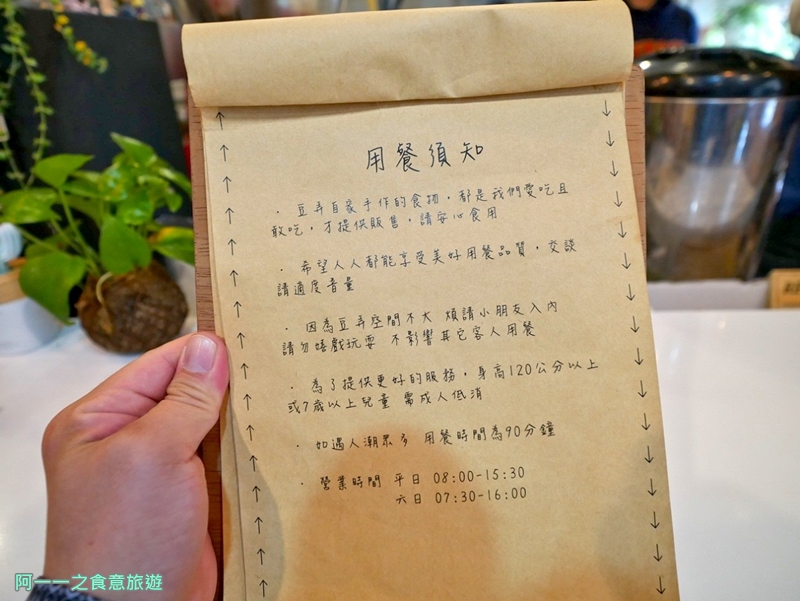 用餐須知
· 豆弄自家手作的食物，都是我們愛吃且
敢吃，才提供販售，請安心食用
· 希望人人都能享受美好用餐品質，交談
請適度音量
· 因為豆弄空間不大 煩請小朋友入內
請勿嬉戲玩耍 不影響其它客人用餐
· 為了提供更好的服務，身高120公分以上
或7歲以上兒童 需成人低消
· 如遇人潮眾多 用餐時間為90分鐘
· 營業時間 平日 08:00-15:30
六日 07:30-16:00
阿一一之食意旅遊